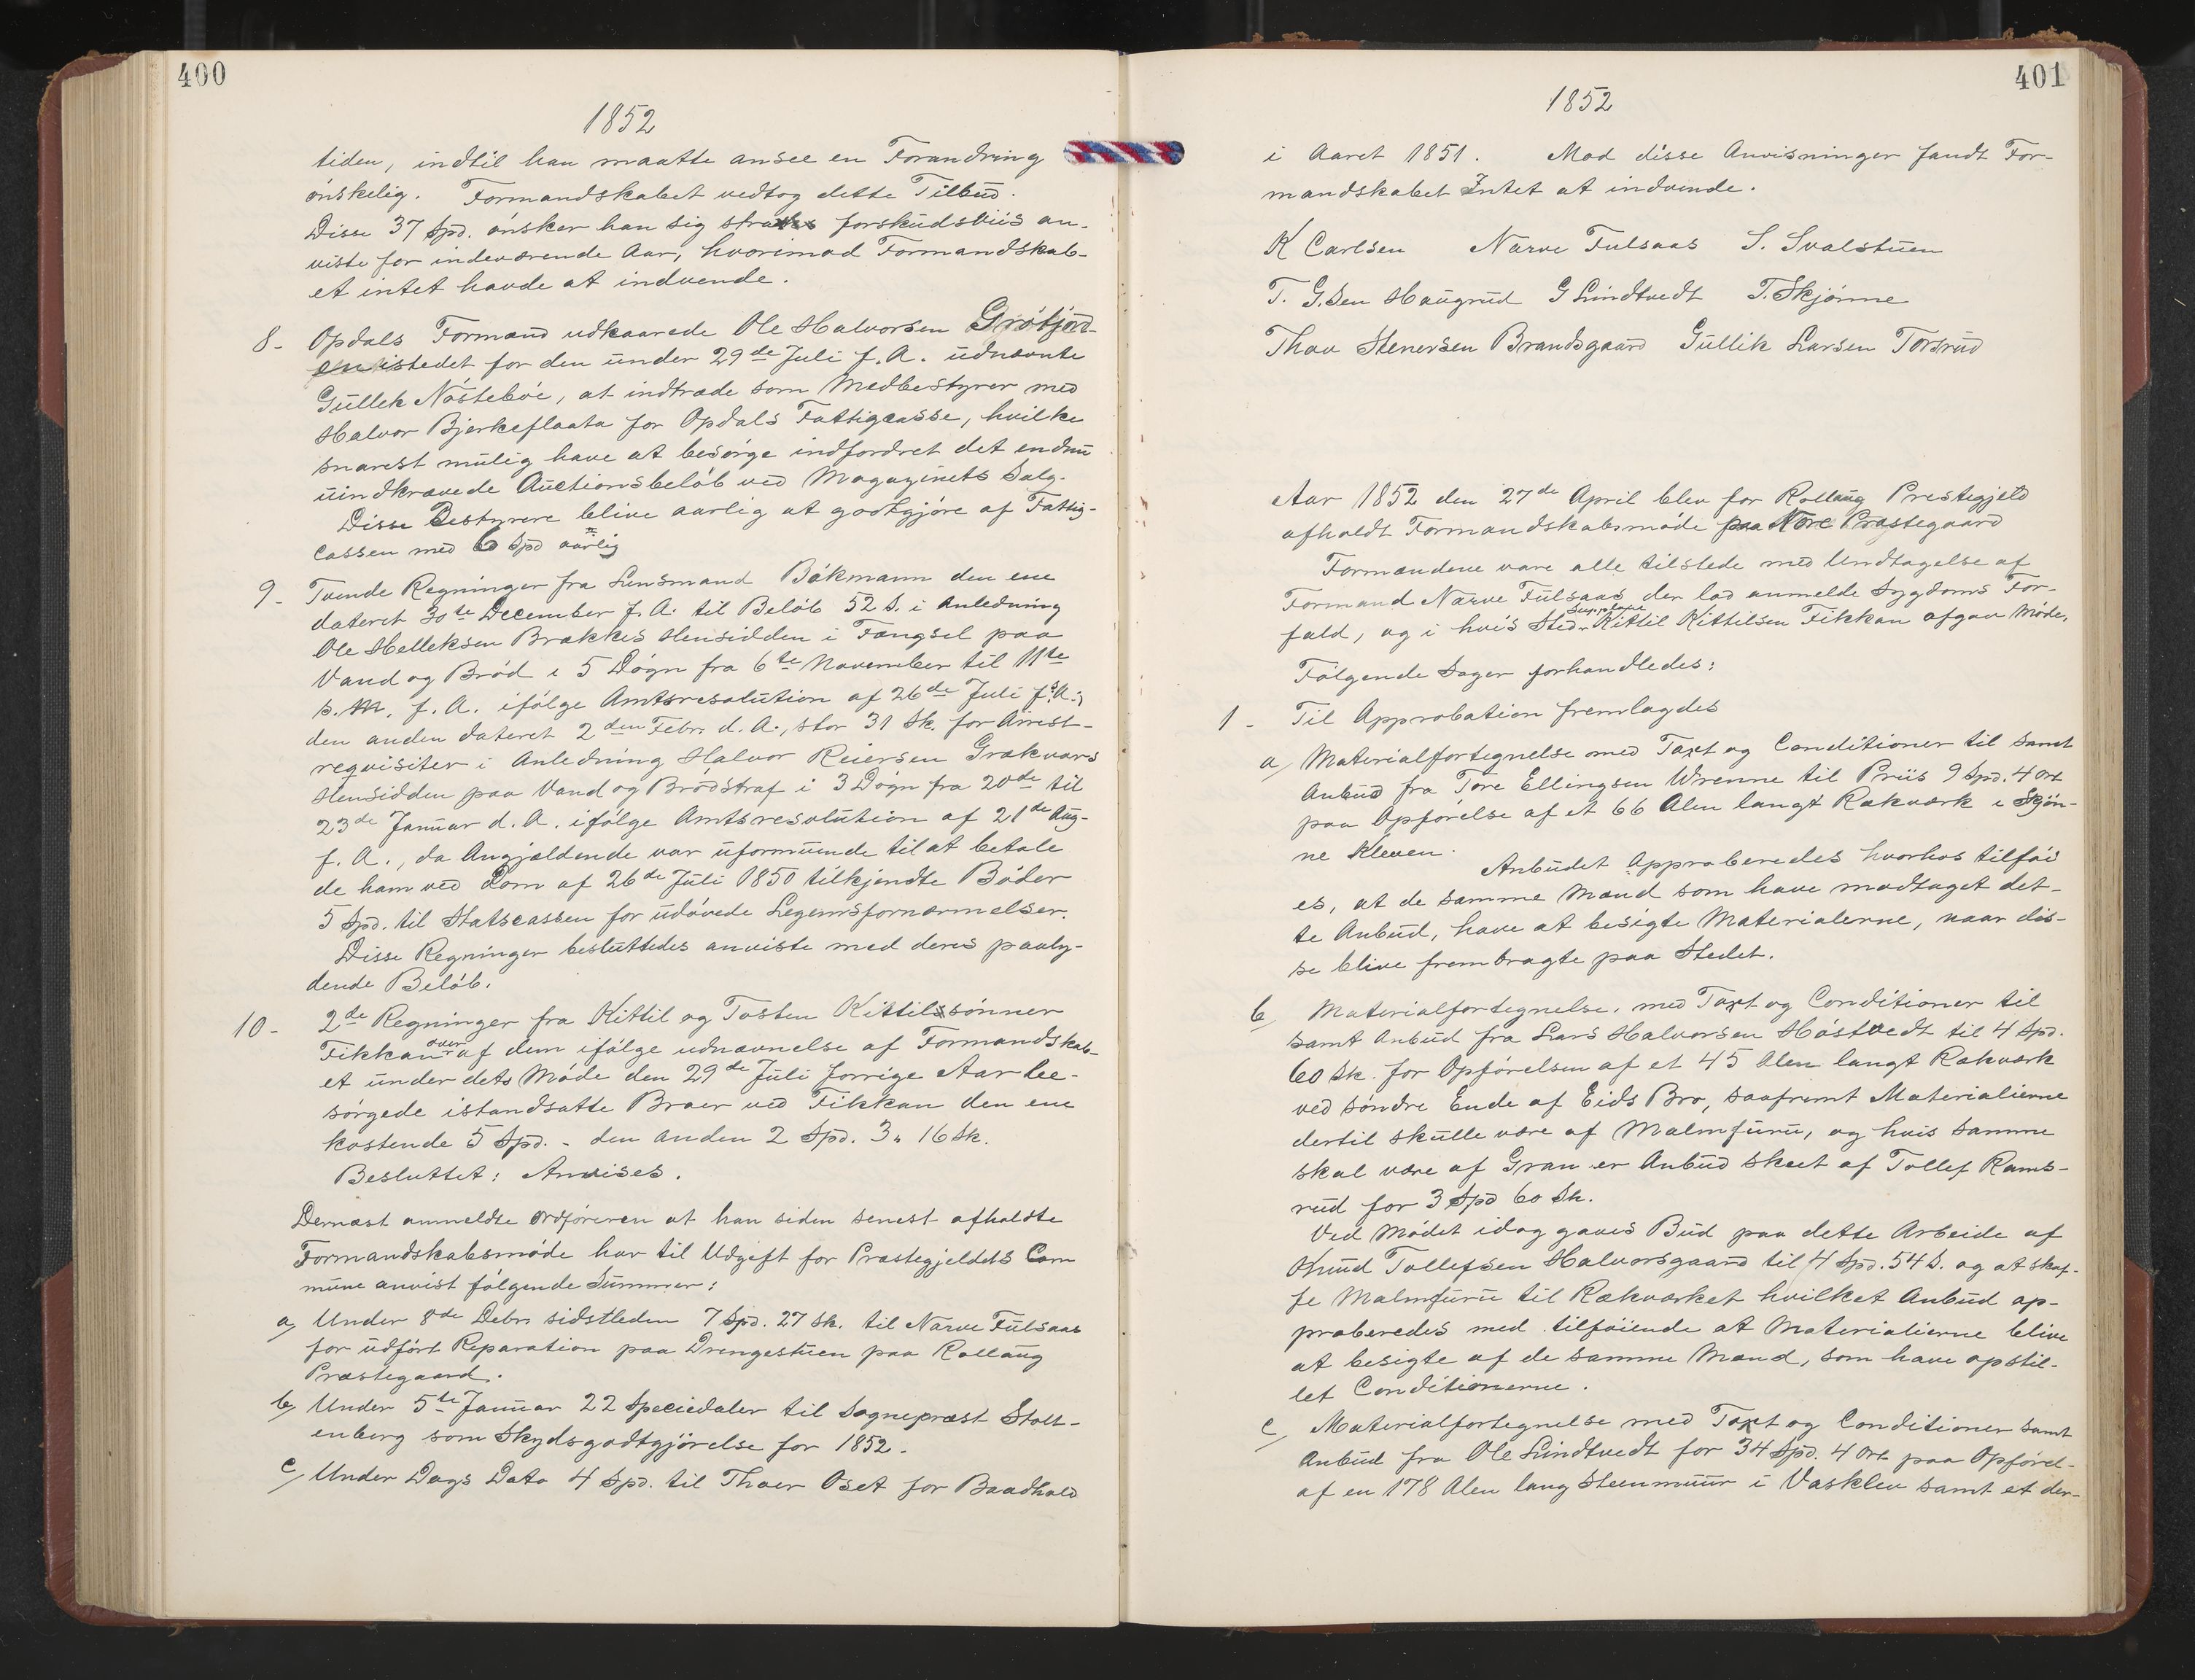 400
1852
tiden, indtil han maatte ansee en Forandring
ønskelig. Formandskabet vedtog dette Tilbud.
Disse 37 Spd. ønsker han sig straks forskudsviis an-
viste for indeværende Aar, hvorimod Formandskab-
et intet havde at indvende.
8- Opdals Formænd udkaarede Ole Halvorsen Grötjord-
en istedet for den under 29de Juli f. A. udnævnte
Gullek Nøsteböe, at indtræde som Medbestyrer med
Halvor Bjerkeflaata for Opdals Fattigcasse, hvilke
snarest mulig have at besørge indfordret det endnu
uindkrævede Auctionsbeløb ved Magazinets Salg.
Disse Bestyrere blive aarlig at godtgjøre af Fattig-
cassen med 6 Spd aarlig
9- Tvende Regninger fra Lensmand Bökmann den ene
dateret 30te December f. A. til Beløb 52 S. i Anledning
Ole Helleksen Brækkes Hensidden i Fængsel paa
Vand og Brød i 5 Døgn fra 6te November til 11te
s. M. f. A. ifølge Amtsresolution af 26de Juli f. A.,
den anden dateret 2den Febr. d. A., stor 31 Sk. for Arrest-
reqvisiter i Anledning Halvor Reiersen Grækvars
Hensidden paa Vand og Brødstraf i 3 Døgn fra 20de til
23de Januar d. A. ifølge Amtsresolution af 21de Aug-
f. A., da Angjældende var uformuende til at betale
de ham ved Dom af 26de Juli 1850 tilkjendte Bøder
5 Spd. til Statscassen for udøvede Legemsfornærmelser.
Disse Regninger besluttedes anviste med deres paaly-
dende Beløb.
10- 2de Regninger fra Kittil og Tosten Kittilssønner
Fikkan over af dem ifølge udnævnelse af Formandskab-
et under dets Møde den 29de Juli forrige Aar bee-
sørgede istandsatte Broer ved Fikkan den ene
kostende 5 Spd. - den anden 2 Spd. 3 " 16 Sk.
Besluttet: Anvises.
Dernæst anmeldte Ordføreren at han siden senest afholdte
Formandskabsmøde har til Udgift for Præstegjeldets Com
mune anvist følgende Summer:
a, Under 8de Debr. sidstleden 7 Spd. 27 Sk. til Narve Fulsaas
for udført Reparation paa Drengestuen paa Rollaug
Præstegaard.
b, Under 5te Januar 22 Speciedaler til Sognepræst Stolt-
enberg som Skydsgodtgjørelse for 1852.
c, Under Dags Dato 4 Spd. til Thoer Øset for Baadhold
401
1852
i Aaret 1851. Mod disse Anvisninger fandt For-
mandskabet Intet at indvende.
K Carlsen Narve Fulsaas S. Svalstuen
T. G.Sen Haugrud G Lindtvedt T. Skjønne
Thov Stenersen Brandsgaard Gullik Larsen Torsrud
Aar 1852 den 27de April blev for Rollaug Prestegjeld
afholdt Formandskabsmøde paa Nore Præstegaard
Formændene vare alle tilstede med Undtagelse af
Formand Narve Fulsaas der lod anmelde Sygdoms For-
fald, og i hvis Sted Suppleant Kittil Kittilsen Fikkan afgav Møde.
Følgende Sager forhandledes:
1- Til Approbation fremlagdes
a, Materialfortegnelse med Taxt og Conditioner til samt
Anbud fra Tore Ellingsen Wrenne til Priis 9 Spd. 4 Ort
paa Opførelse af et 66 Alen langt Rækværk i Skjøn-
ne Kleven.
Anbudet approberedes hvorhos tilføi
es, at de samme Mænd som have modtaget det-
te Anbud, have at besigte Materialerne, naar dis-
se blive frembragte paa Stedet.
b, Materialfortegnelse, med Taxt og Conditioner til
samt Anbud fra Lars Halvorsen Høstvedt til 4 Spd.
60 Sk. for Opførelsen af et 45 Alen langt Rækværk
ved søndre Ende af Eids Bro, saafremt Materialierne
dertil skulle være af Malmfuru, og hvis samme
skal være af Gran er Anbud skeet af Tollef Rams-
rud for 3 Spd 60 Sk.
Ved Mødet idag gaves Bud paa dette Arbeide af
Knud Tollefsen Halvorsgaard til 4 Spd. 54 S. og at skaf-
fe Malmfuru til Rækværket hvilket Anbud ap-
proberedes med tilføiende at Materialierne blive
at besigte af de samme Mænd, som have opstil-
let Conditionerne.
c, Materialfortegnelse med Taxt og Conditioner samt
Anbud fra Ole Lindtvedt for 34 Spd. 4 Ort paa Opførel-
af en 178 Alen lang Steenmuur i Vasklev samt et der-